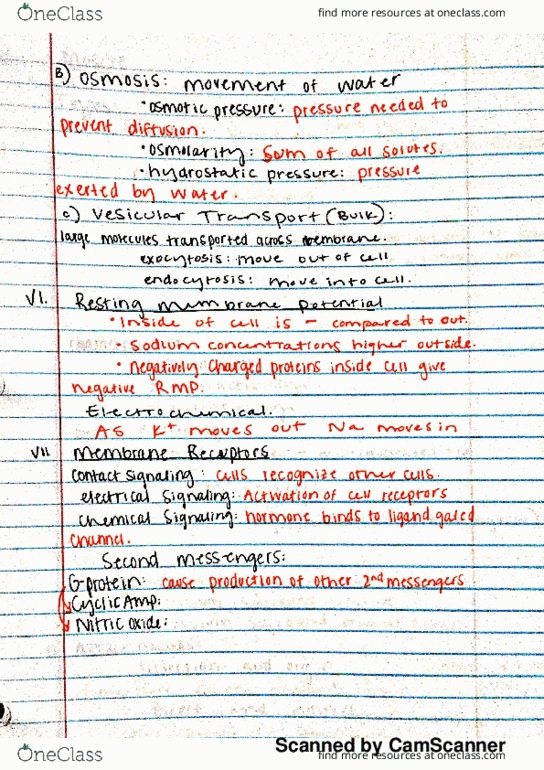 OneClass
find more resources at oneclass.com
B) Osmosis: movement of water
• osmotic pressure: pressure needed to
prevent diffusion.
• osmolarity: Sum of all solutes.
• hydrostatic pressure: pressure
exerted by water.
c) Vesicular Transport (Bulk):
large molecules transported across membrane.
exocytosis: move out of cell
endocytosis: move into cell.
VI. Resting Membrane Potential
• Inside of cell is - compared to out.
• Sodium concentrations higher outside.
• negatively charged proteins inside cell give
negative RMP.
Electrochemical.
As K+ moves out Na moves in
VII Membrane Receptors
contact signaling: cells recognize other cells.
electrical signaling: Activation of cell receptors
chemical signaling: hormone binds to ligand gated
channel.
Second messengers:
G-protein: cause production of other 2nd messengers
Cyclic Amp:
Nitric oxide:
OneClass
Scanned by CamScanner
find more resources at oneclass.com